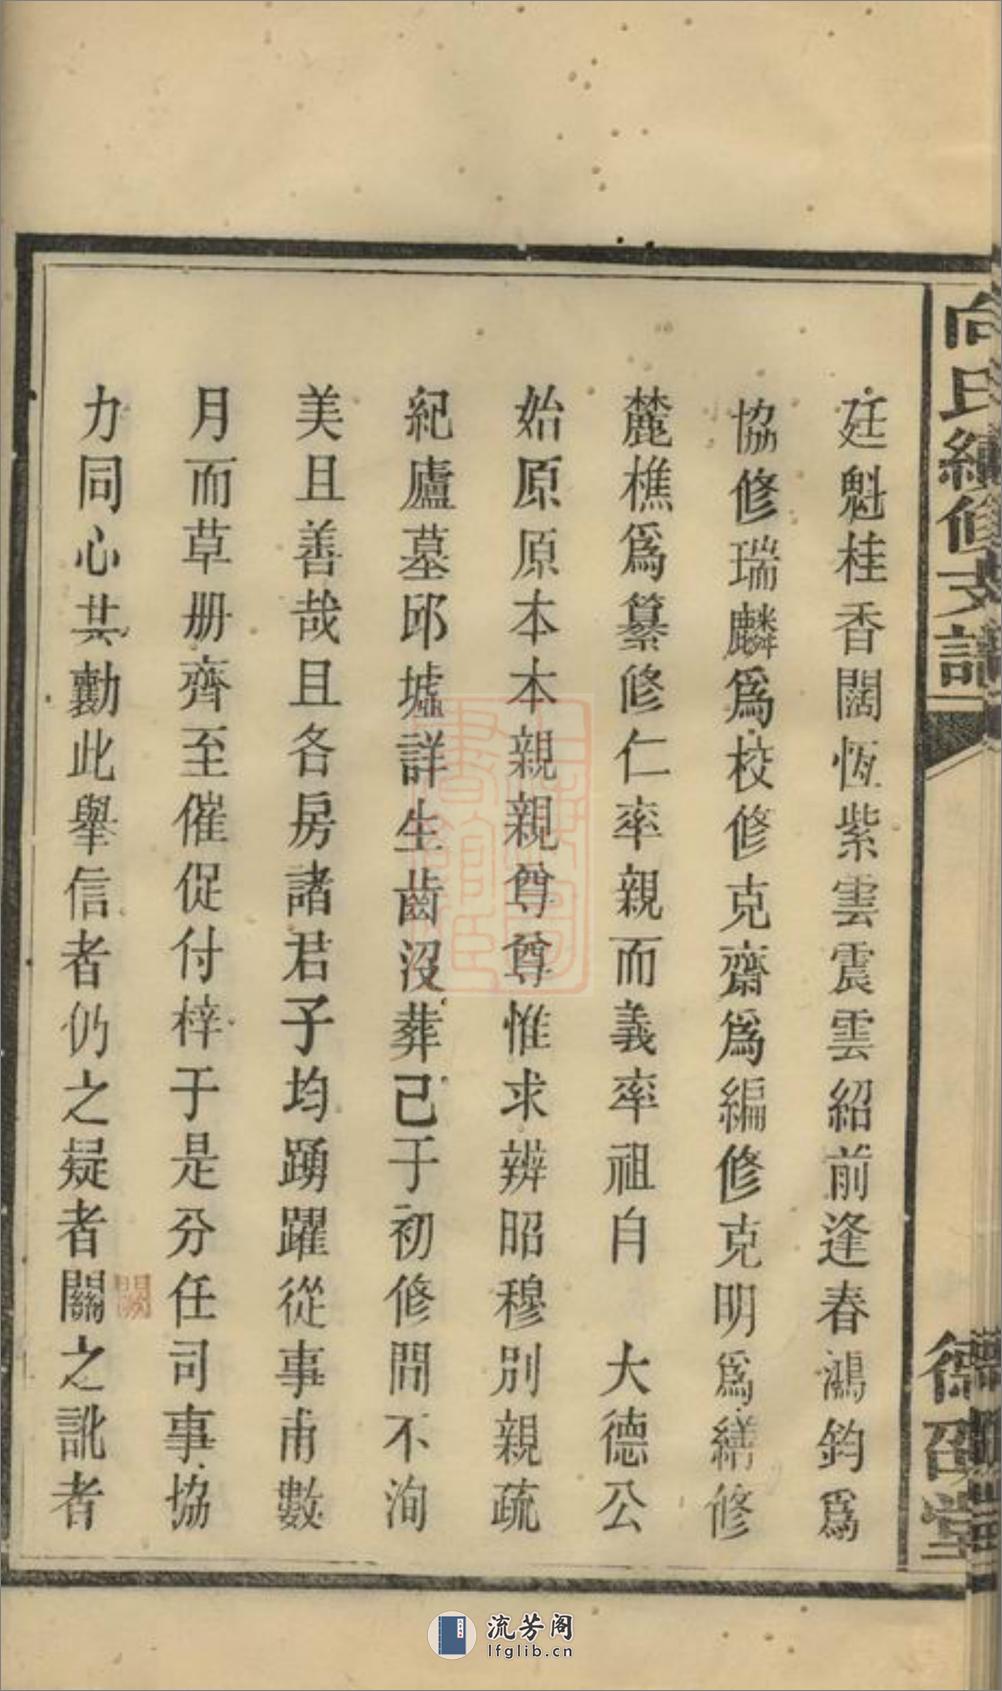 向氏續修支譜
廷魁桂香闊恆紫雲震雲紹前逢春鴻鈞爲
協修瑞麟爲校修克齋爲編修克明爲繕修
麓樵爲纂修仁率親而義率祖自 大德公
始原原本本親親尊尊惟求辨昭穆別親疏
紀廬墓邱墟詳生齒沒葬已于初修問不洵
美且善哉且各房諸君子均踴躍從事甫數
月而草册齊至催促付梓于是分任司事協
力同心共勷此舉信者仍之疑者闕之訛者
流芳阁
lfglib.cn